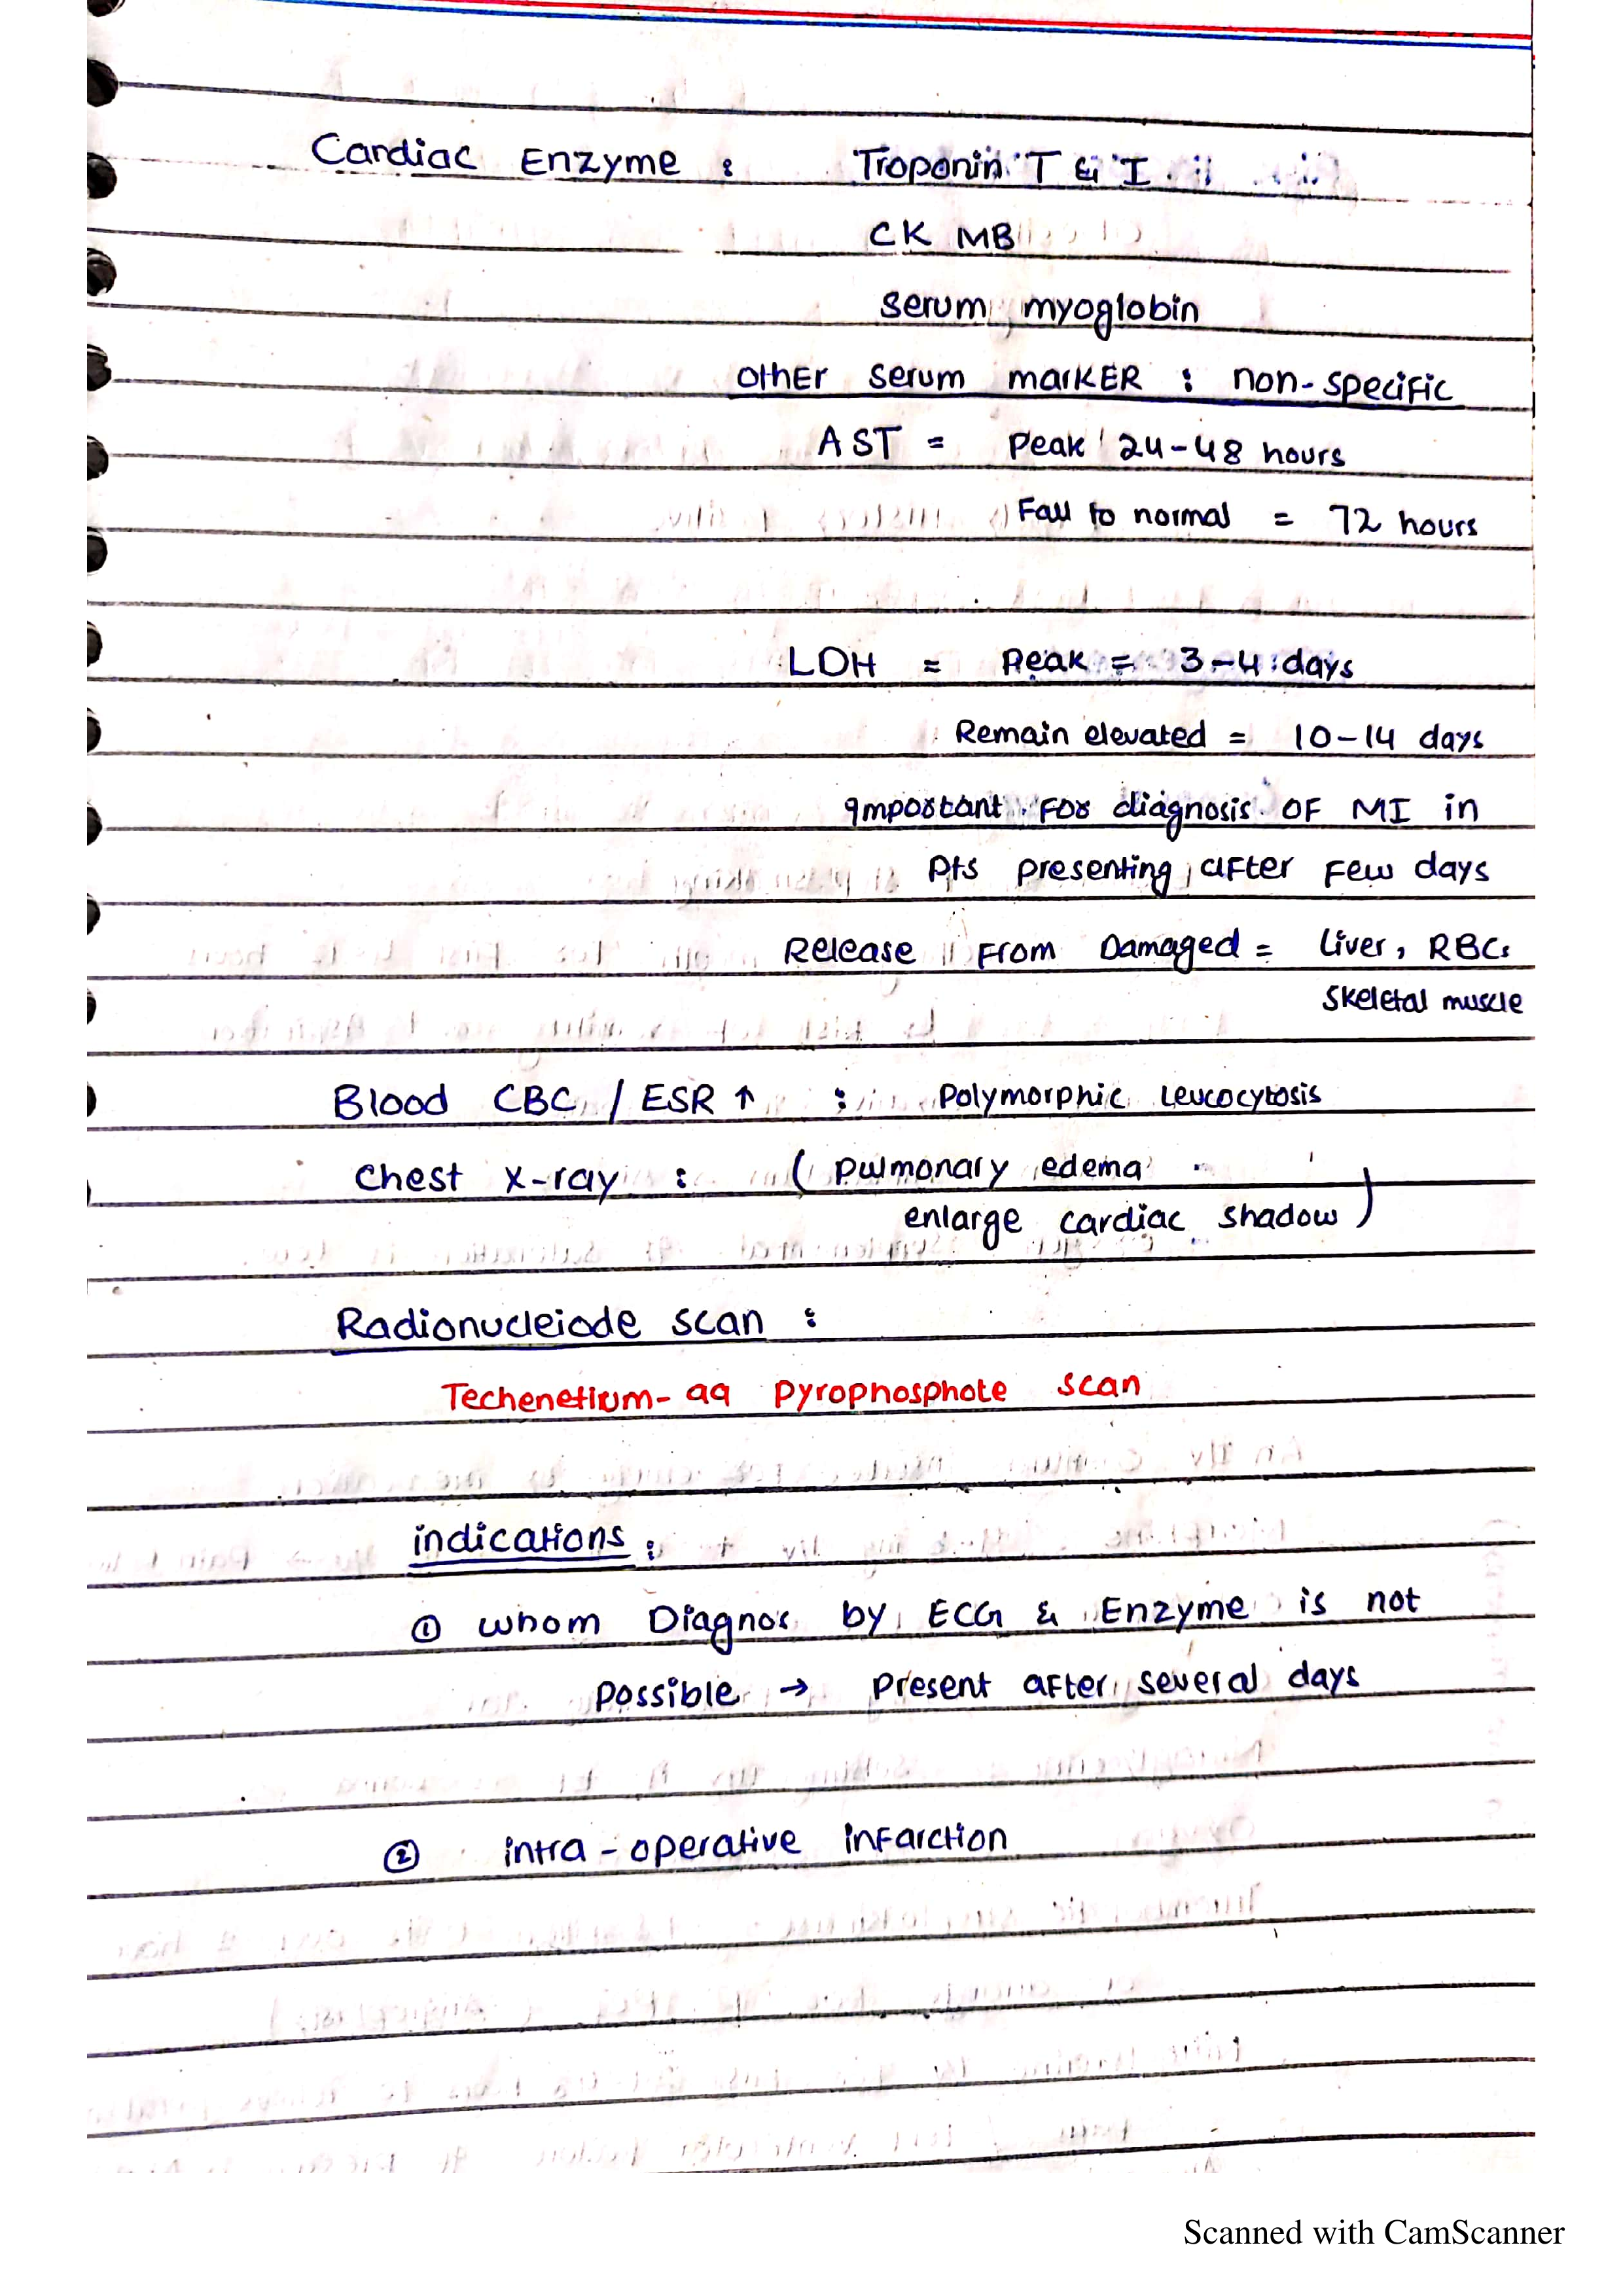 Cardiac Enzyme : Troponin T & I
CK MB
Serum myoglobin
Other serum marker : non-specific
AST = Peak 24-48 hours
Fall to normal = 72 hours
LDH = Peak = 3-4 days
Remain elevated = 10-14 days
Important For diagnosis OF MI in
Pts presenting after Few days
Release From Damaged = Liver, RBCs
Skeletal muscle
Blood CBC / ESR ↑ : Polymorphic Leucocytosis
Chest X-ray : ( Pulmonary edema
enlarge cardiac shadow )
Radionucleiode scan :
Techenetium-99 Pyrophosphote scan
indications :
① whom Diagnos by ECG & Enzyme is not
Possible → Present after several days
② intra-operative infarction
Scanned with CamScanner